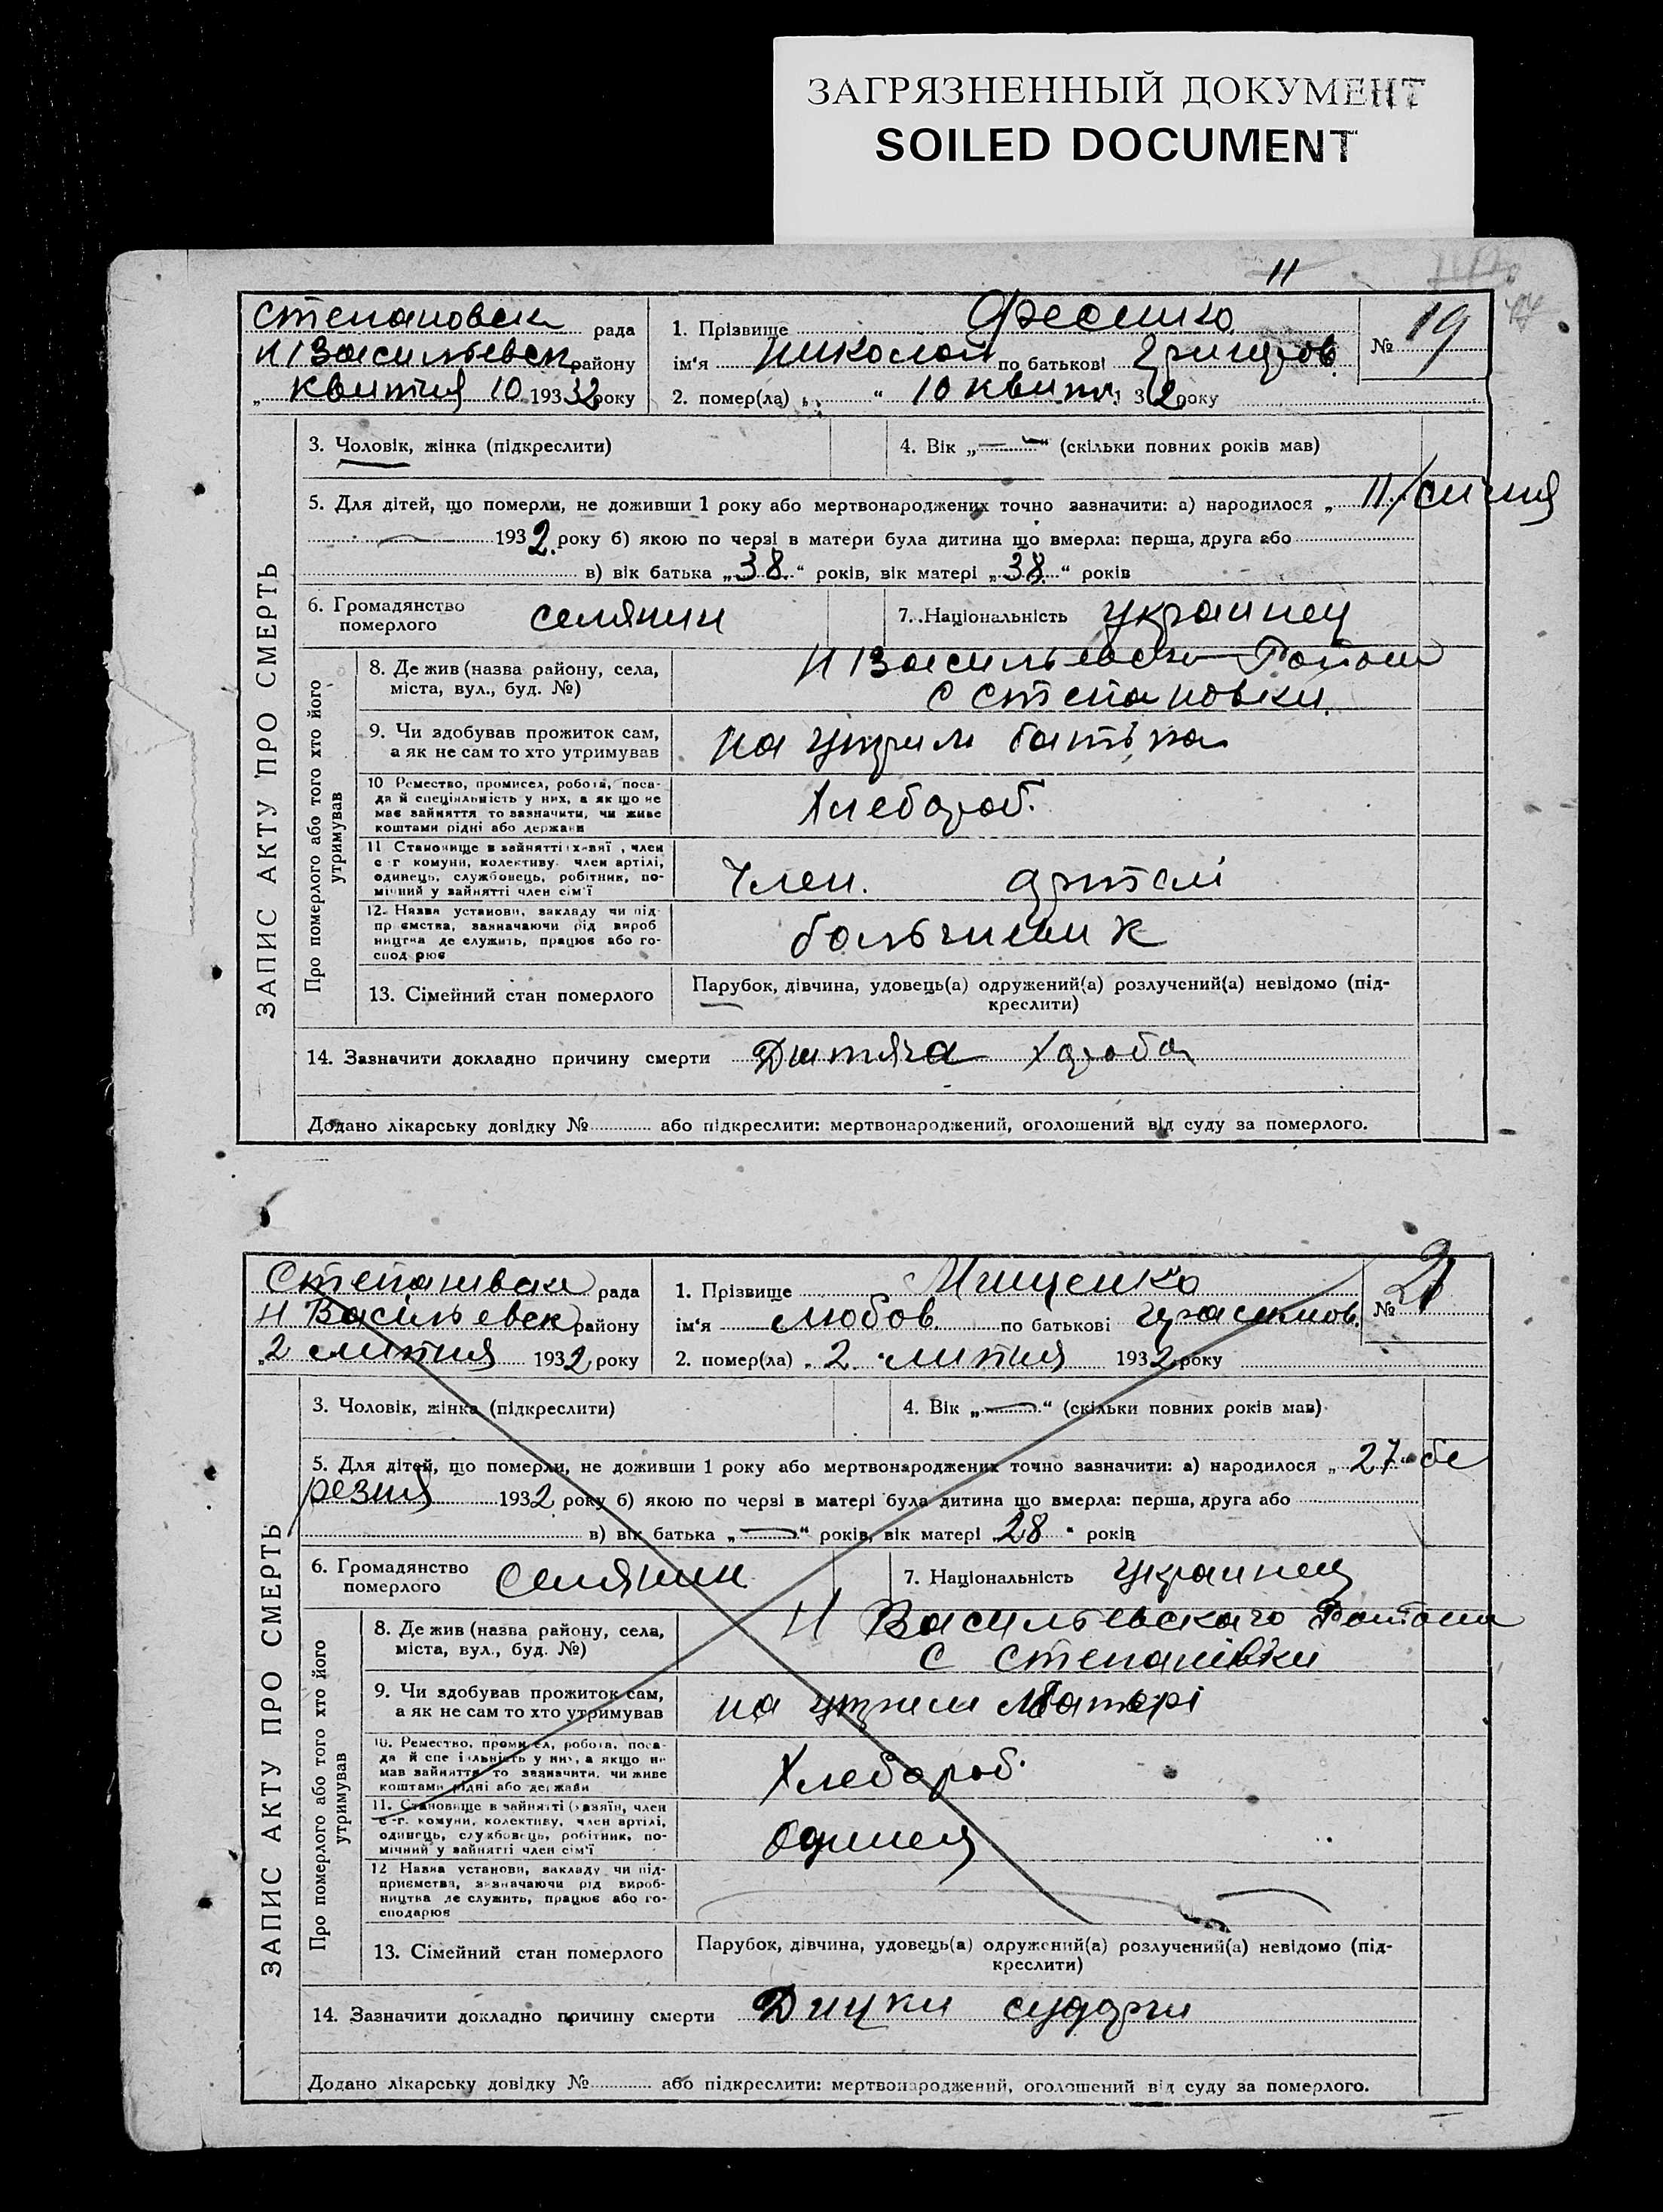 ЗАГРЯЗНЕННЫЙ ДОКУМЕНТ
SOILED DOCUMENT
11
ЗАПИС АКТУ ПРО СМЕРТЬ
Степановск рада
Н Васильевск району
„ квитня 10 1932 року
1. Прізвище Фесенко
ім'я Николай по батькові Григоров.
2. помер(ла) „ “ 10 квитня 32 року
№ 19
3. Чоловік, жінка (підкреслити)
4. Вік „ — “ (скільки повних років мав)
5. Для дітей, що померли, не доживши 1 року або мертвонароджених точно зазначити: а) народилося „ 11 сичня
1932 року б) якою по черзі в матери була дитина що вмерла: перша, друга або
в) вік батька „38“ років, вік матері „38“ років
6. Громадянство померлого селянин
7. Національність украинец
Про померлого або того хто його утримував
8. Де жив (назва району, села, міста, вул., буд. №)
Н Васильевско Район
с Степановки
9. Чи здобував прожиток сам, а як не сам то хто утримував
на утрим батька
10 Ремество, промисел, робота, поса-
да й спеціяльність у них, а як що не
має зайняття то зазначити, чи живе
коштами рідні або держави
Хлебороб.
11 Становище в зайнятті, член
с-г комуни, колективу, член артілі,
одинець, службовець, робітник, по-
мічний у зайнятті член сім'ї
Член. артелі
12. Назва установи, закладу чи під-
приємства, зазначаючи рід вироб
ництва де служить, працює або го-
сподарює
13. Сімейний стан померлого
Парубок, дівчина, удовець(а) одружений(а) розлучений(а) невідомо (під-
креслити)
14. Зазначити докладно причину смерти Дитяча хороба
Додано лікарську довідку № або підкреслити: мертвонароджений, оголошений від суду за померлого.
ЗАПИС АКТУ ПРО СМЕРТЬ
Степановск рада
Н Васільевск району
„2 липня 1932 року
1. Прізвище Мищенко
ім'я Любов по батькові Герасимов.
2. помер(ла) „ 2 “ липня 1932 року
№ 21
3. Чоловік, жінка (підкреслити)
4. Вік „ — “ (скільки повних років мав)
5. Для дітей, що померли, не доживши 1 року або мертвонароджених точно зазначити: а) народилося „ 27 “ бе
резня 1932 року б) якою по черзі в матері була дитина що вмерла: перша, друга або
в) вік батька „ — “ років, вік матері „28“ років
6. Громадянство померлого Селянин
7. Національність украинец
Про померлого або того хто його утримував
8. Де жив (назва району, села, міста, вул., буд. №)
Н Васильевскаго Района
с Степанівки
9. Чи здобував прожиток сам, а як не сам то хто утримував
на утрим Матері
10. Ремество, промисел, робота, поса-
да й спеціяльність у них, а якщо не
мав зайняття то зазначити, чи живе
коштами рідні або держави
Хлебороб.
11. Становище в зайнятті (хазяїн, член
с-г. комуни, колективу, член артілі,
одинець, службовець, робітник, по-
мічний у зайнятті член сім'ї
Одинец
12 Назва установи, закладу чи під-
приємства, зазначаючи рід вироб-
ництва де служить, працює або го-
сподарює
13. Сімейний стан померлого
Парубок, дівчина, удовець(а) одружений(а) розлучений(а) невідомо (під-
креслити)
14. Зазначити докладно причину смерти судорги
Додано лікарську довідку № або підкреслити: мертвонароджений, оголошений від суду за померлого.